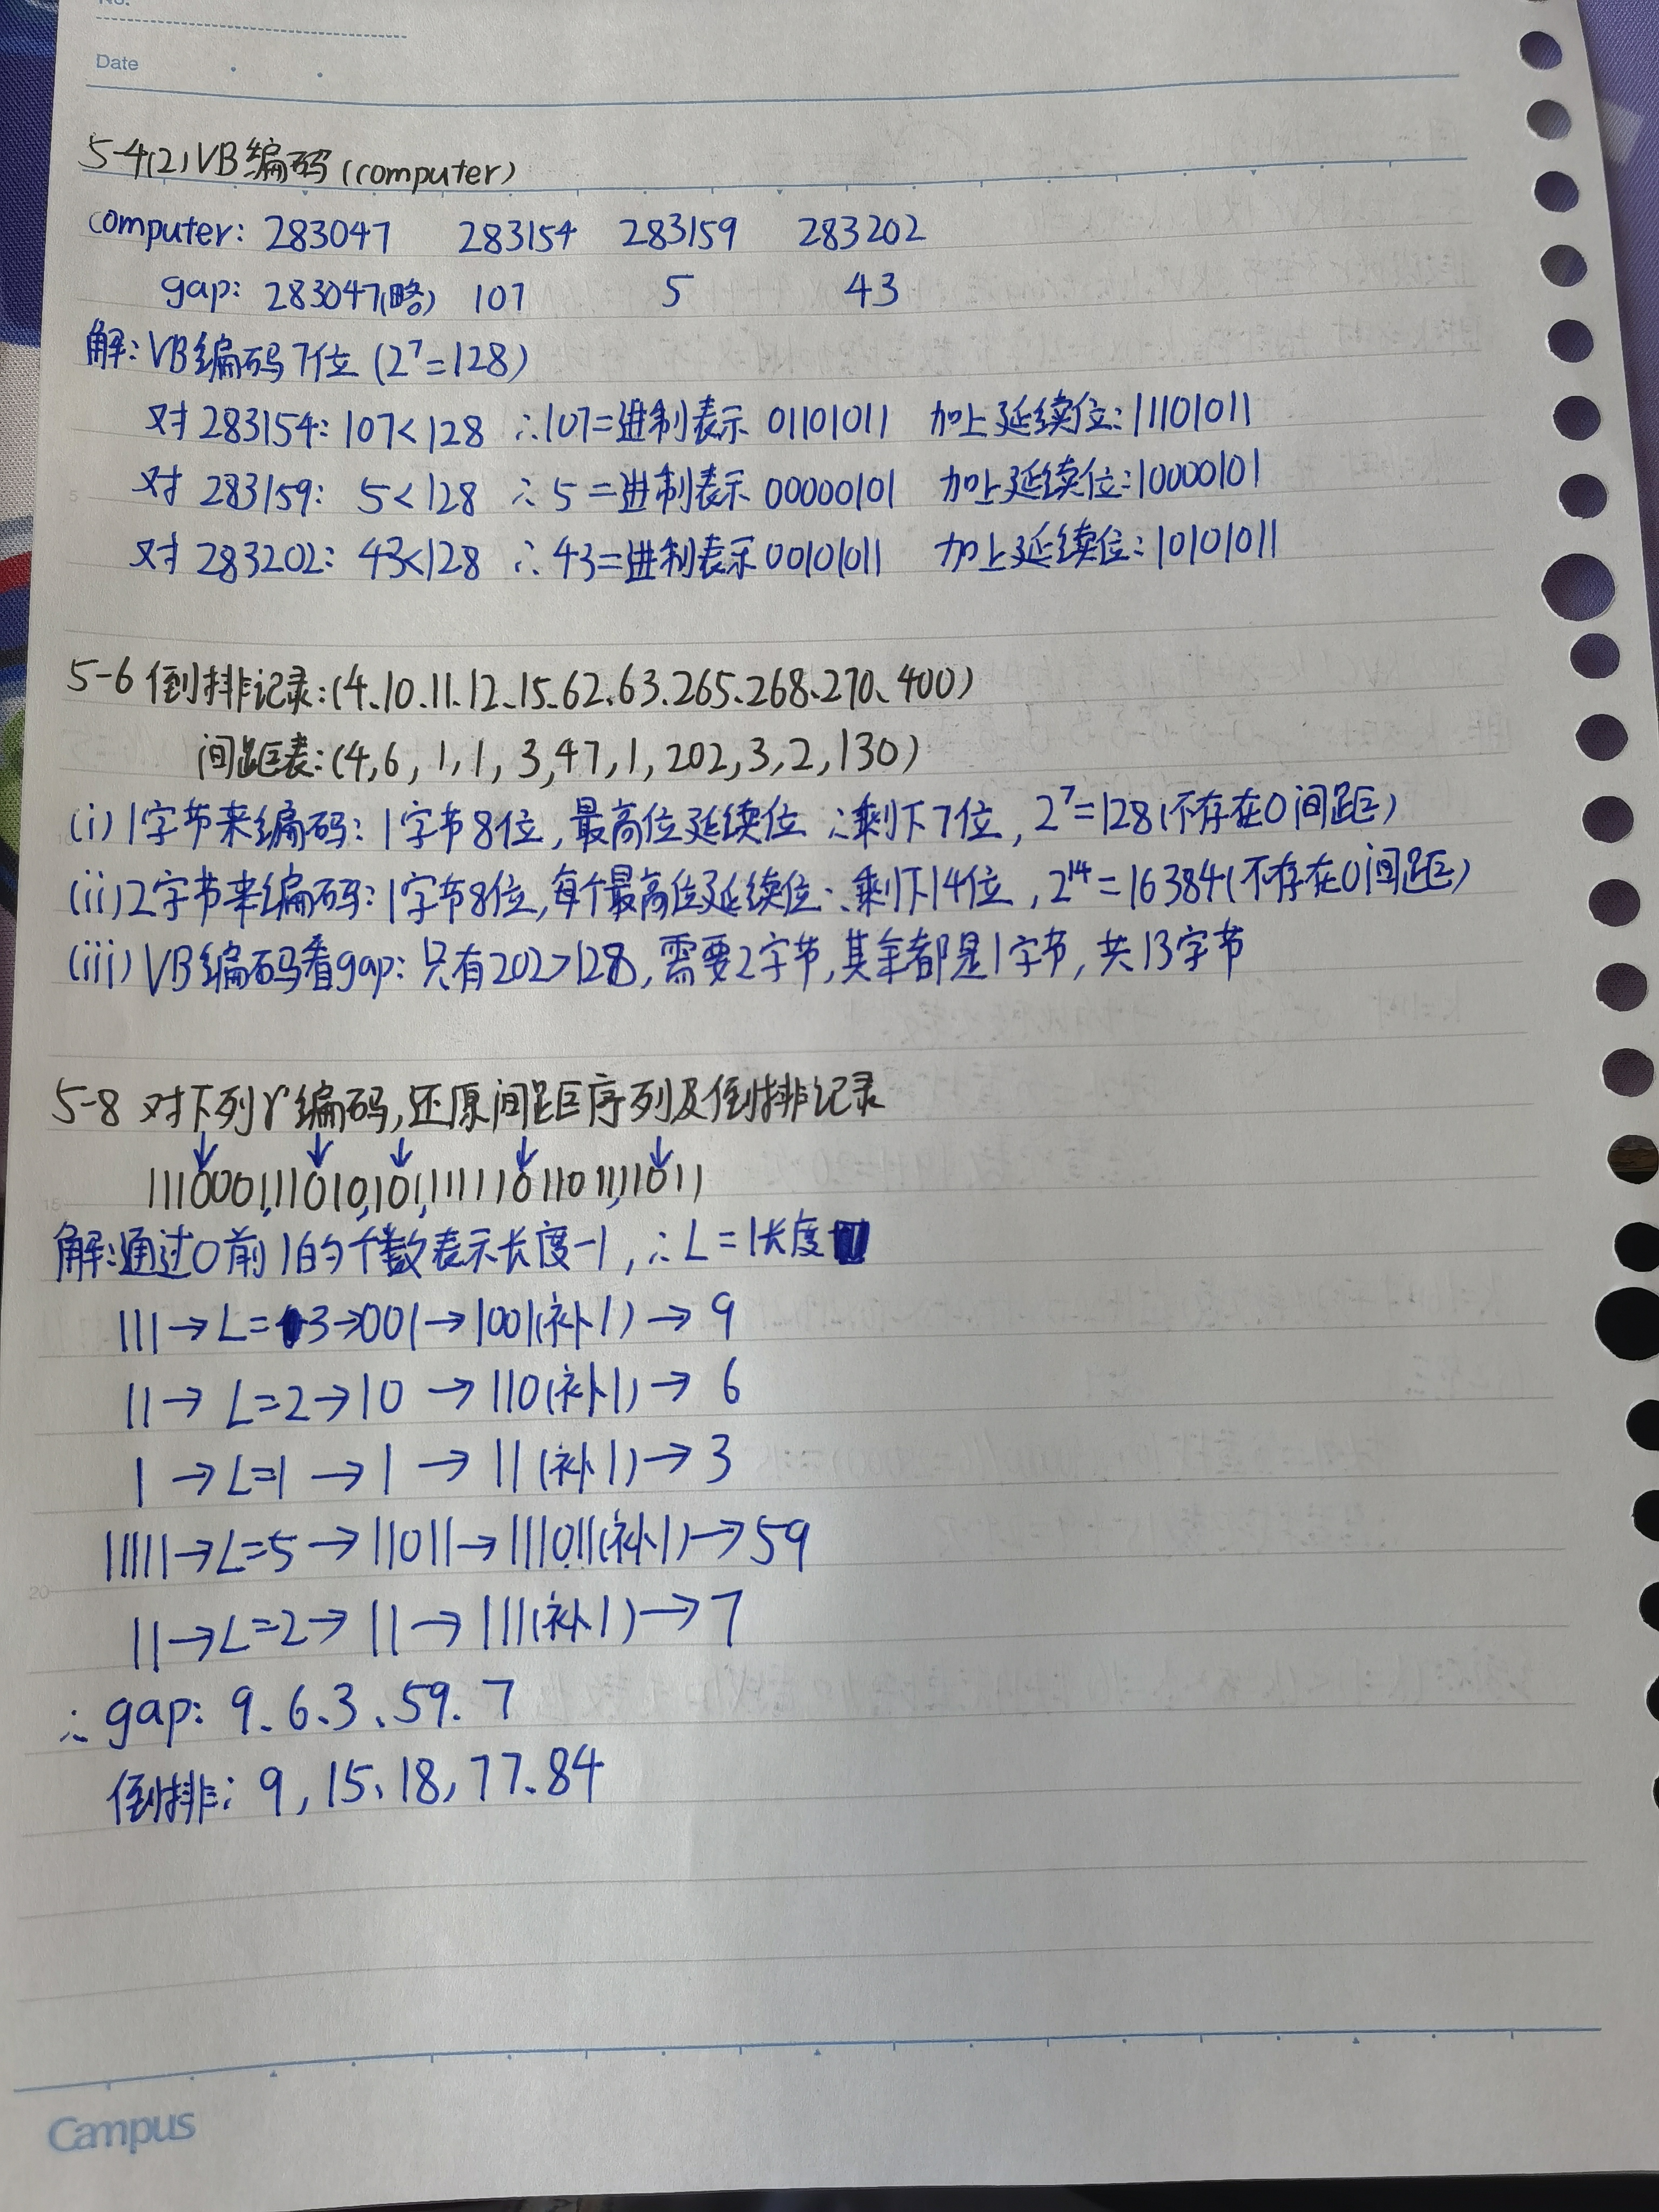 No.
Date
5-4(2)VB编码(computer)
computer: 283047 283154 283159 283202
gap: 283047(略) 107 5 43
解:VB编码7位(2⁷=128)
对283154: 107<128 ∴107二进制表示 01101011 加上延续位:11101011
对 283159: 5<128 ∴5二进制表示 00000101 加上延续位:10000101
对 283202: 43<128 ∴43二进制表示00101011 加上延续位:10101011
5-6 倒排记录:(4、10、11、12、15、62、63、265、268、270、400)
间距表:(4,6,1,1,3,47,1,202,3,2,130)
(i)1字节来编码:1字节8位,最高位延续位∴剩下7位,2⁷=128(不存在0间距)
(ii)2字节来编码:1字节8位,每个最高位延续位∴剩下14位,2¹⁴=16384(不存在0间距)
(iii)VB编码看gap:只有202>128,需要2字节,其余都是1字节,共13字节
5-8 对下列γ编码,还原间距序列及倒排记录
↓ ↓ ↓ ↓ ↓
1110001,11010,101,11111011011,11011
解:通过0前1的个数表示长度-1,∴L=1长度
111→L=3→001→1001(补1)→9
11→L=2→10→110(补1)→6
1→L=1→1→11(补1)→3
11111→L=5→11011→111011(补1)→59
11→L=2→11→111(补1)→7
∴gap: 9、6、3、59、7
倒排: 9,15、18,77、84
Campus